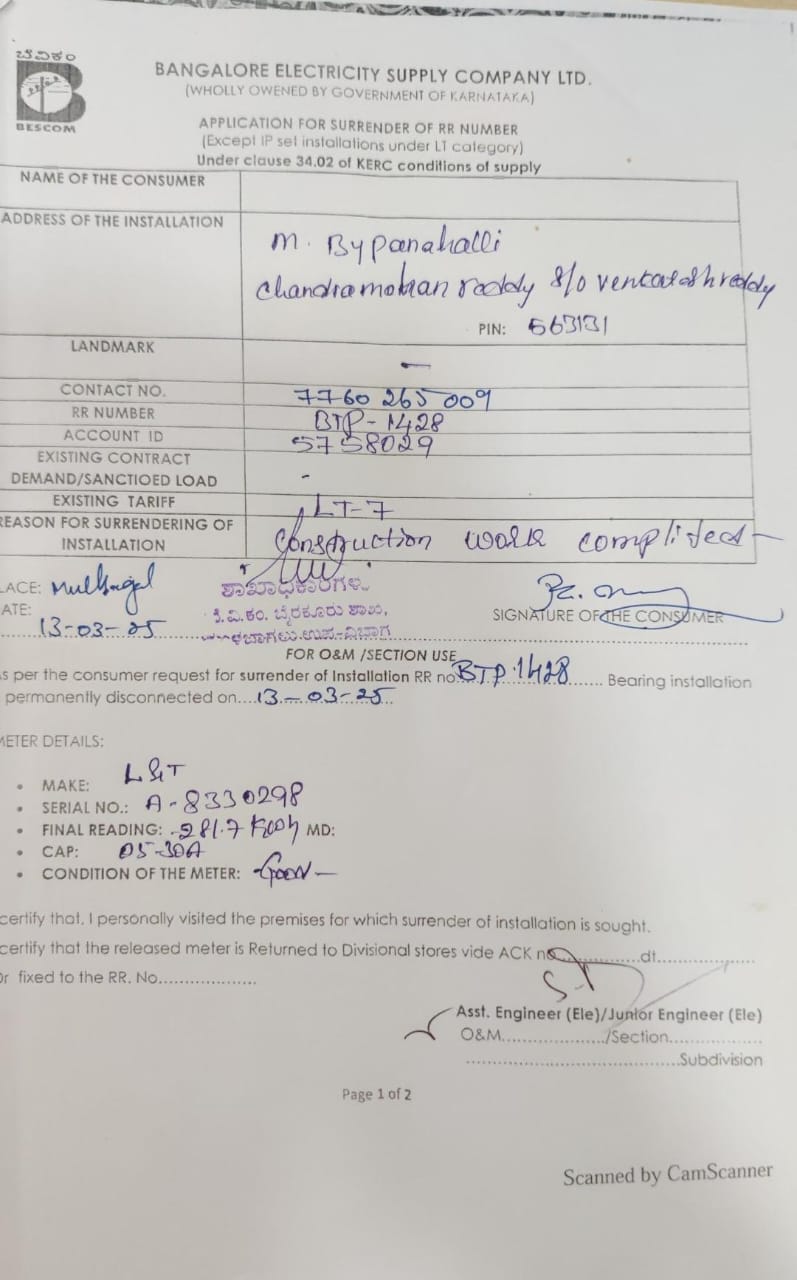 ಬೆವಿಕಂ
BESCOM
BANGALORE ELECTRICITY SUPPLY COMPANY LTD.
(WHOLLY OWENED BY GOVERNMENT OF KARNATAKA)
APPLICATION FOR SURRENDER OF RR NUMBER
(Except IP set installations under LT category)
Under clause 34.02 of KERC conditions of supply
NAME OF THE CONSUMER
ADDRESS OF THE INSTALLATION
M. Bypanahalli
Chandramohan reddy S/o venkatesh reddy
PIN: 563131
LANDMARK -
CONTACT NO. 7760 265 009
RR NUMBER BTP-1428
ACCOUNT ID 5758029
EXISTING CONTRACT
DEMAND/SANCTIOED LOAD -
EXISTING TARIFF LT-7
REASON FOR SURRENDERING OF
INSTALLATION Construction work complited
LACE: Mulbagal
ATE: 13-03-25
ಶಾಖಾಧಿಕಾರಿಗಳು.
ಬೈರಕೂರು ಶಾಖೆ,
ಉಪ-ವಿಭಾಗ
SIGNATURE OF THE CONSUMER
FOR O&M /SECTION USE
s per the consumer request for surrender of Installation RR no. BTP 1428 ....... Bearing installation
permanently disconnected on....13-03-25..
METER DETAILS:
• MAKE: L&T
• SERIAL NO.: A-8330298
• FINAL READING: 281.7 kwh MD:
• CAP: 05-30A
• CONDITION OF THE METER: Good
certify that, I personally visited the premises for which surrender of installation is sought.
certify that the released meter is Returned to Divisional stores vide ACK no..............dt..................
Or fixed to the RR. No..................
Asst. Engineer (Ele)/Junior Engineer (Ele)
O&M..................../Section.................
........................................Subdivision
Page 1 of 2
Scanned by CamScanner